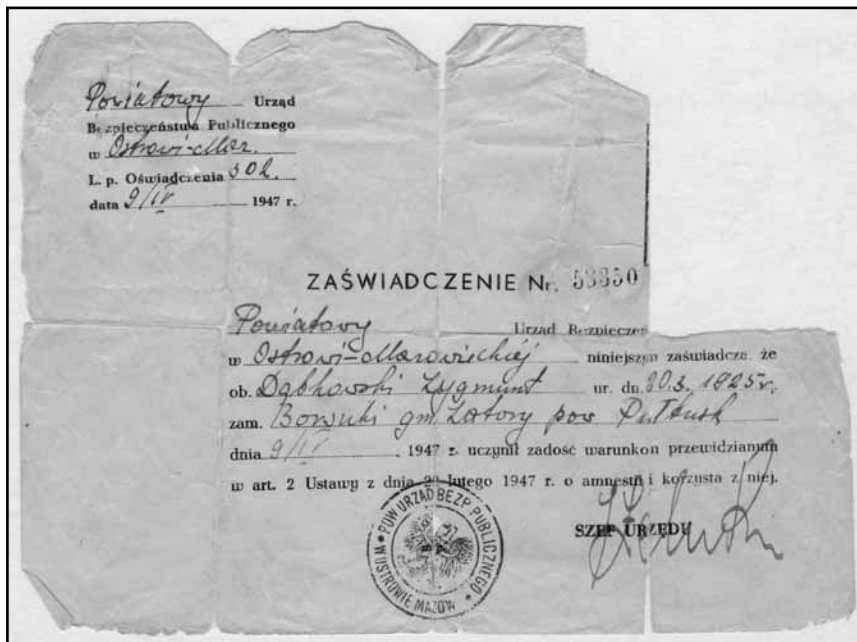 Powiatowy Urząd
Bezpieczeństwa Publicznego
w Ostrowi-Maz.
L. p. Oświadczenia 502.
data 9/IV 1947 r.
ZAŚWIADCZENIE Nr. 53350
Powiatowy Urząd Bezpieczeń
w Ostrowi-Mazowieckiej niniejszym zaświadcza, że
ob. Dąbkowski Zygmunt ur. dn. 20.3. 1925 r.
zam. gm. Zatory pow Pułtusk
dnia 9/IV 1947 r. uczynił zadość warunkom przewidzianym
w art. 2 Ustawy z dnia 22 lutego 1947 r. o amnestii i korzysta z niej.
SZEF URZĘDU
POW URZĄD BEZP PUBLICZNEGO
W OSTROWIE MAZOW.
m p.